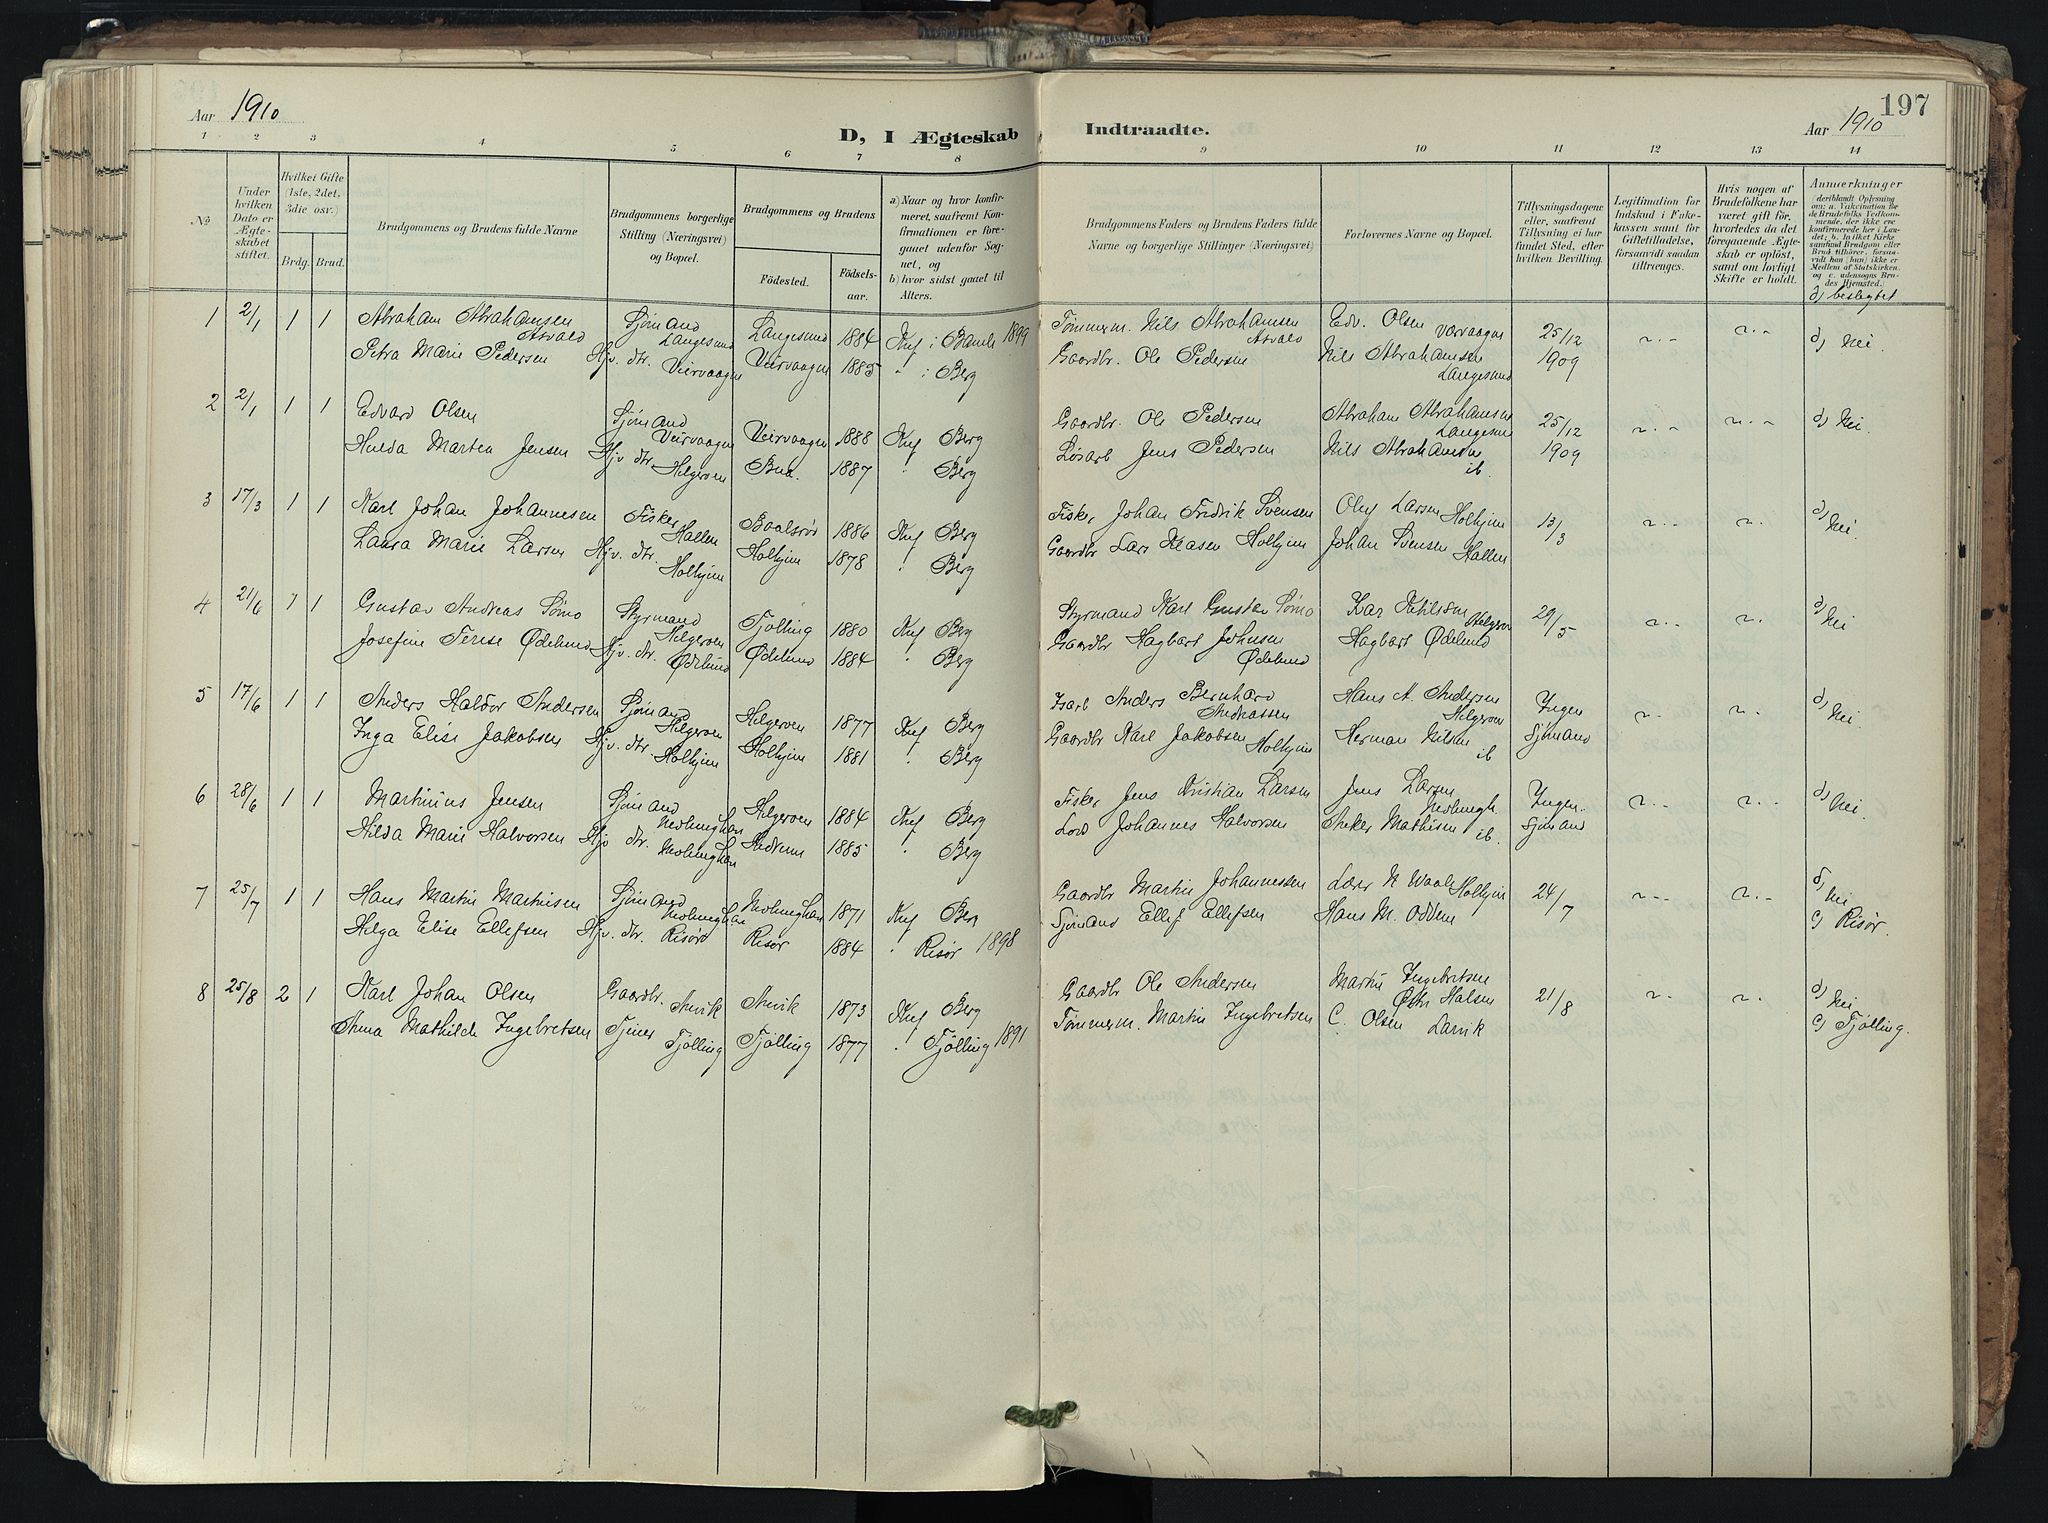 Aar 1910
D, I Ægteskab Indtraadte.
Aar 1910
197
1 2 3 4 5 6 7 8 9 10 11 12 13 14
№
Under hvilken Dato er Ægteskabet stiftet.
Hvilket Gifte (1ste, 2det, 3die osv.)
Brdg. Brud.
Brudgommens og Brudens fulde Navne
Brudgommens borgerlige Stilling (Næringsvei) og Bopæl.
Brudgommens og Brudens
Födested. Födsels-aar.
a) Naar og hvor konfirmeret, saafremt Konfirmationen er foregaaet udenfor Sognet, og
b) hvor sidst gaaet til Alters.
Brudgommens Faders og Brudens Faders fulde Navne og borgerlige Stillinger (Næringsvei)
Forlovernes Navne og Bopæl.
Tillysningsdagene eller, saafremt Tillysning ei har fundet Sted, efter hvilken Bevilling.
Legitimation for Indskud i Enkekassen samt for Giftetilladelse, forsaavidt saadan tiltrænges.
Hvis nogen af Brudefolkene har været gift för, hvorledes da det foregaaende Ægteskab er oplöst, samt om lovligt Skifte er holdt.
Anmerkninger (deriblandt Oplysning om: a. Vakcination for de Brudefolks Vedkommende, der ikke ere konfirmerede her i Landet; b. hvilket Kirkesamfund Brudgom eller Brud tilhörer, forsaavidt han (hun) ikke er Medlem af Statskirken, og c. udensogns Brudes Hjemsted.
d) beslegtet
1 2/1 1 1 Abraham Abrahamsen Asvald Sjømand Langesund Langesund 1884 Knf i Bamle 1899 Tømmerm. Nils Abrahamsen Asvald Edv. Olsen Værvaagen 25/12 " - " - d) Nei.
Petra Marie Pedersen Hjv. dtr. Veirvaagen Veirvaagen 1885 " i Berg Gaardbr. Ole Pedersen Nils Abrahamsen Langesund 1909
2 2/1 1 1 Edvard Olsen Sjømand Veirvaagen Veirvaagen 1888 Knf Berg Gaardbr. Ole Pedersen Abraham Abrahamsen Langesund 25/12 " - " - d) Nei.
Hulda Martea Jensen Hjv dtr. Helgeroen 1887 " Berg Løsarb Jens Pedersen Nils Abrahamsen ib 1909
3 17/3 1 1 Karl Johan Johannesen Fisker Hallen 1886 Knf Berg Fisker Johan Fridrik Svensen Oluf Larsen Holhjem 13/3 " - " - d) Nei.
Laura Marie Larsen Hjv. dtr. Holhjem Holhjem 1878 " Berg Gaardbr Lars Holhjem Johan Svensen Hallen
4 21/6 1 1 Gustav Andreas Sømo Styrmand Helgeroen Tjølling 1880 Knf Berg Styrmand Karl Gustav Sømo Helgeroen 29/5 " - " - d) Nei
Josefine Terese Ødelund Hjv. dtr. Ødelund Ødelund 1884 " Berg Gaardbr Hagbart Johnsen Ødelund Hagbart Ødelund
5 17/6 1 1 Anders Haldor Andersen Sjømand Helgeroen Helgeroen 1877 Knf Berg Anders Bernhard Andreassen Hans A. Andersen Helgeroen Ingen " - " - d) Nei
Inga Elise Jakobsen Hjv. dtr. Holhjem Holhjem 1881 " Berg Gaardbr Karl Jakobsen Holhjem Herman Nilsen ib Sjømand
6 28/6 1 1 Martinius Jensen Sjømand Nevlunghan Helgeroen 1884 Knf Berg Fisker Jens Kristian Larsen Jens Larsen Nevlungh. Ingen. " - " - d) Nei.
Hilda Marie Halvorsen Hjv dtr. Nevlunghan 1885 " Berg Lods Johannes Halvorsen Anker Mathisen ib. Sjømand
7 25/7 1 1 Hans Martin Martinsen Sjømand Nevlunghan Nevlunghan 1871 Knf Berg Gaardbr Martin Johannessen Lærer Holhjem 24/7 " - " - d) Nei
Helga Elise Ellefsen Hjv. dtr. Risør Risør 1884 " Risør 1898 Sjømand Ellef Ellefsen Hans M. Oddem c) Risør.
8 25/8 2 1 Karl Johan Olsen Gaardbr. Anvik Anvik 1873 Knf Berg Gaardbr Ole Andersen Martin Ingebretsen Østr Halsen 21/8 " - " - d) Nei
Anna Mathilde Ingebretsen Tjener Tjølling Tjølling 1877 " Tjølling 1891 Tømmerm. Martin Ingebretsen C. Olsen Larvik c) Tjølling.